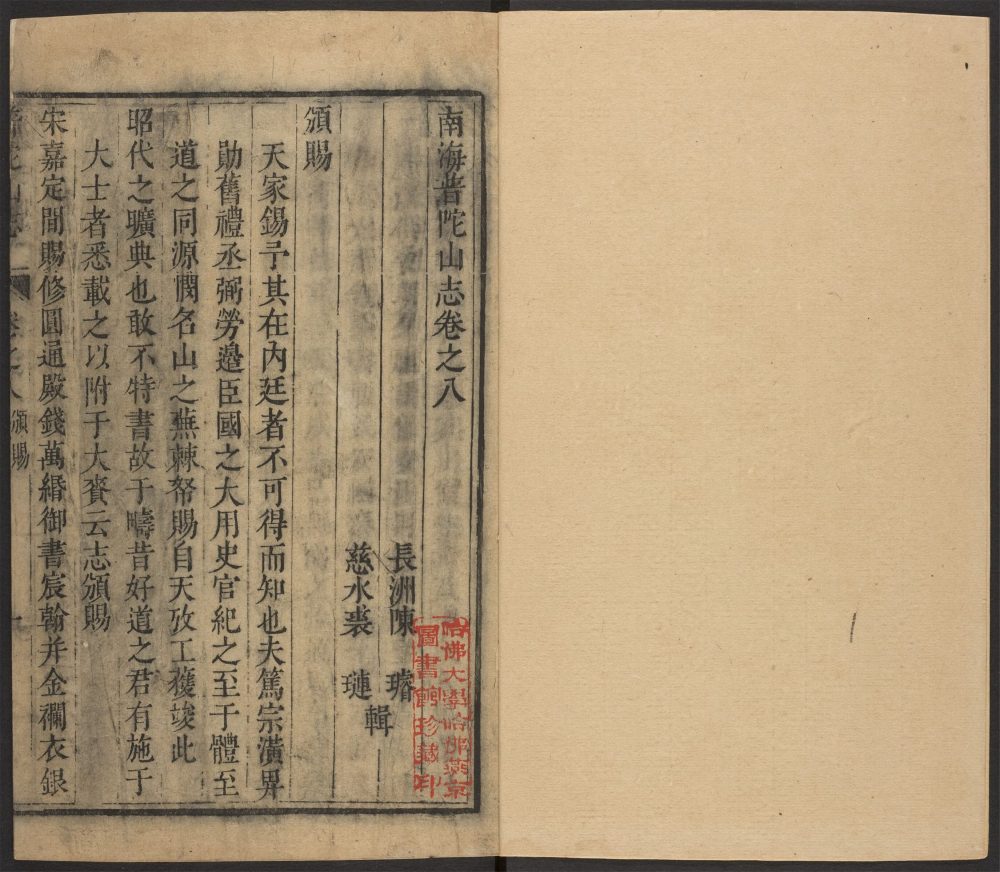 南海普陀山志卷之八
長洲陳 璿
慈水裘 璉
輯
頒賜
天家錫予其在內廷者不可得而知也夫篤宗潢畀
勛舊禮丞弼勞邊臣國之大用史官紀之至于體至
道之同源憫名山之蕪棘帑賜自天攷工獲竣此
昭代之曠典也敢不特書故于疇昔好道之君有施于
大士者悉載之以附于大賚云志頒賜
宋嘉定間賜修圓通殿錢萬緡御書宸翰并金襴衣銀
山志 卷之八 頒賜 一
哈佛大學哈佛燕京
圖書館珍藏印